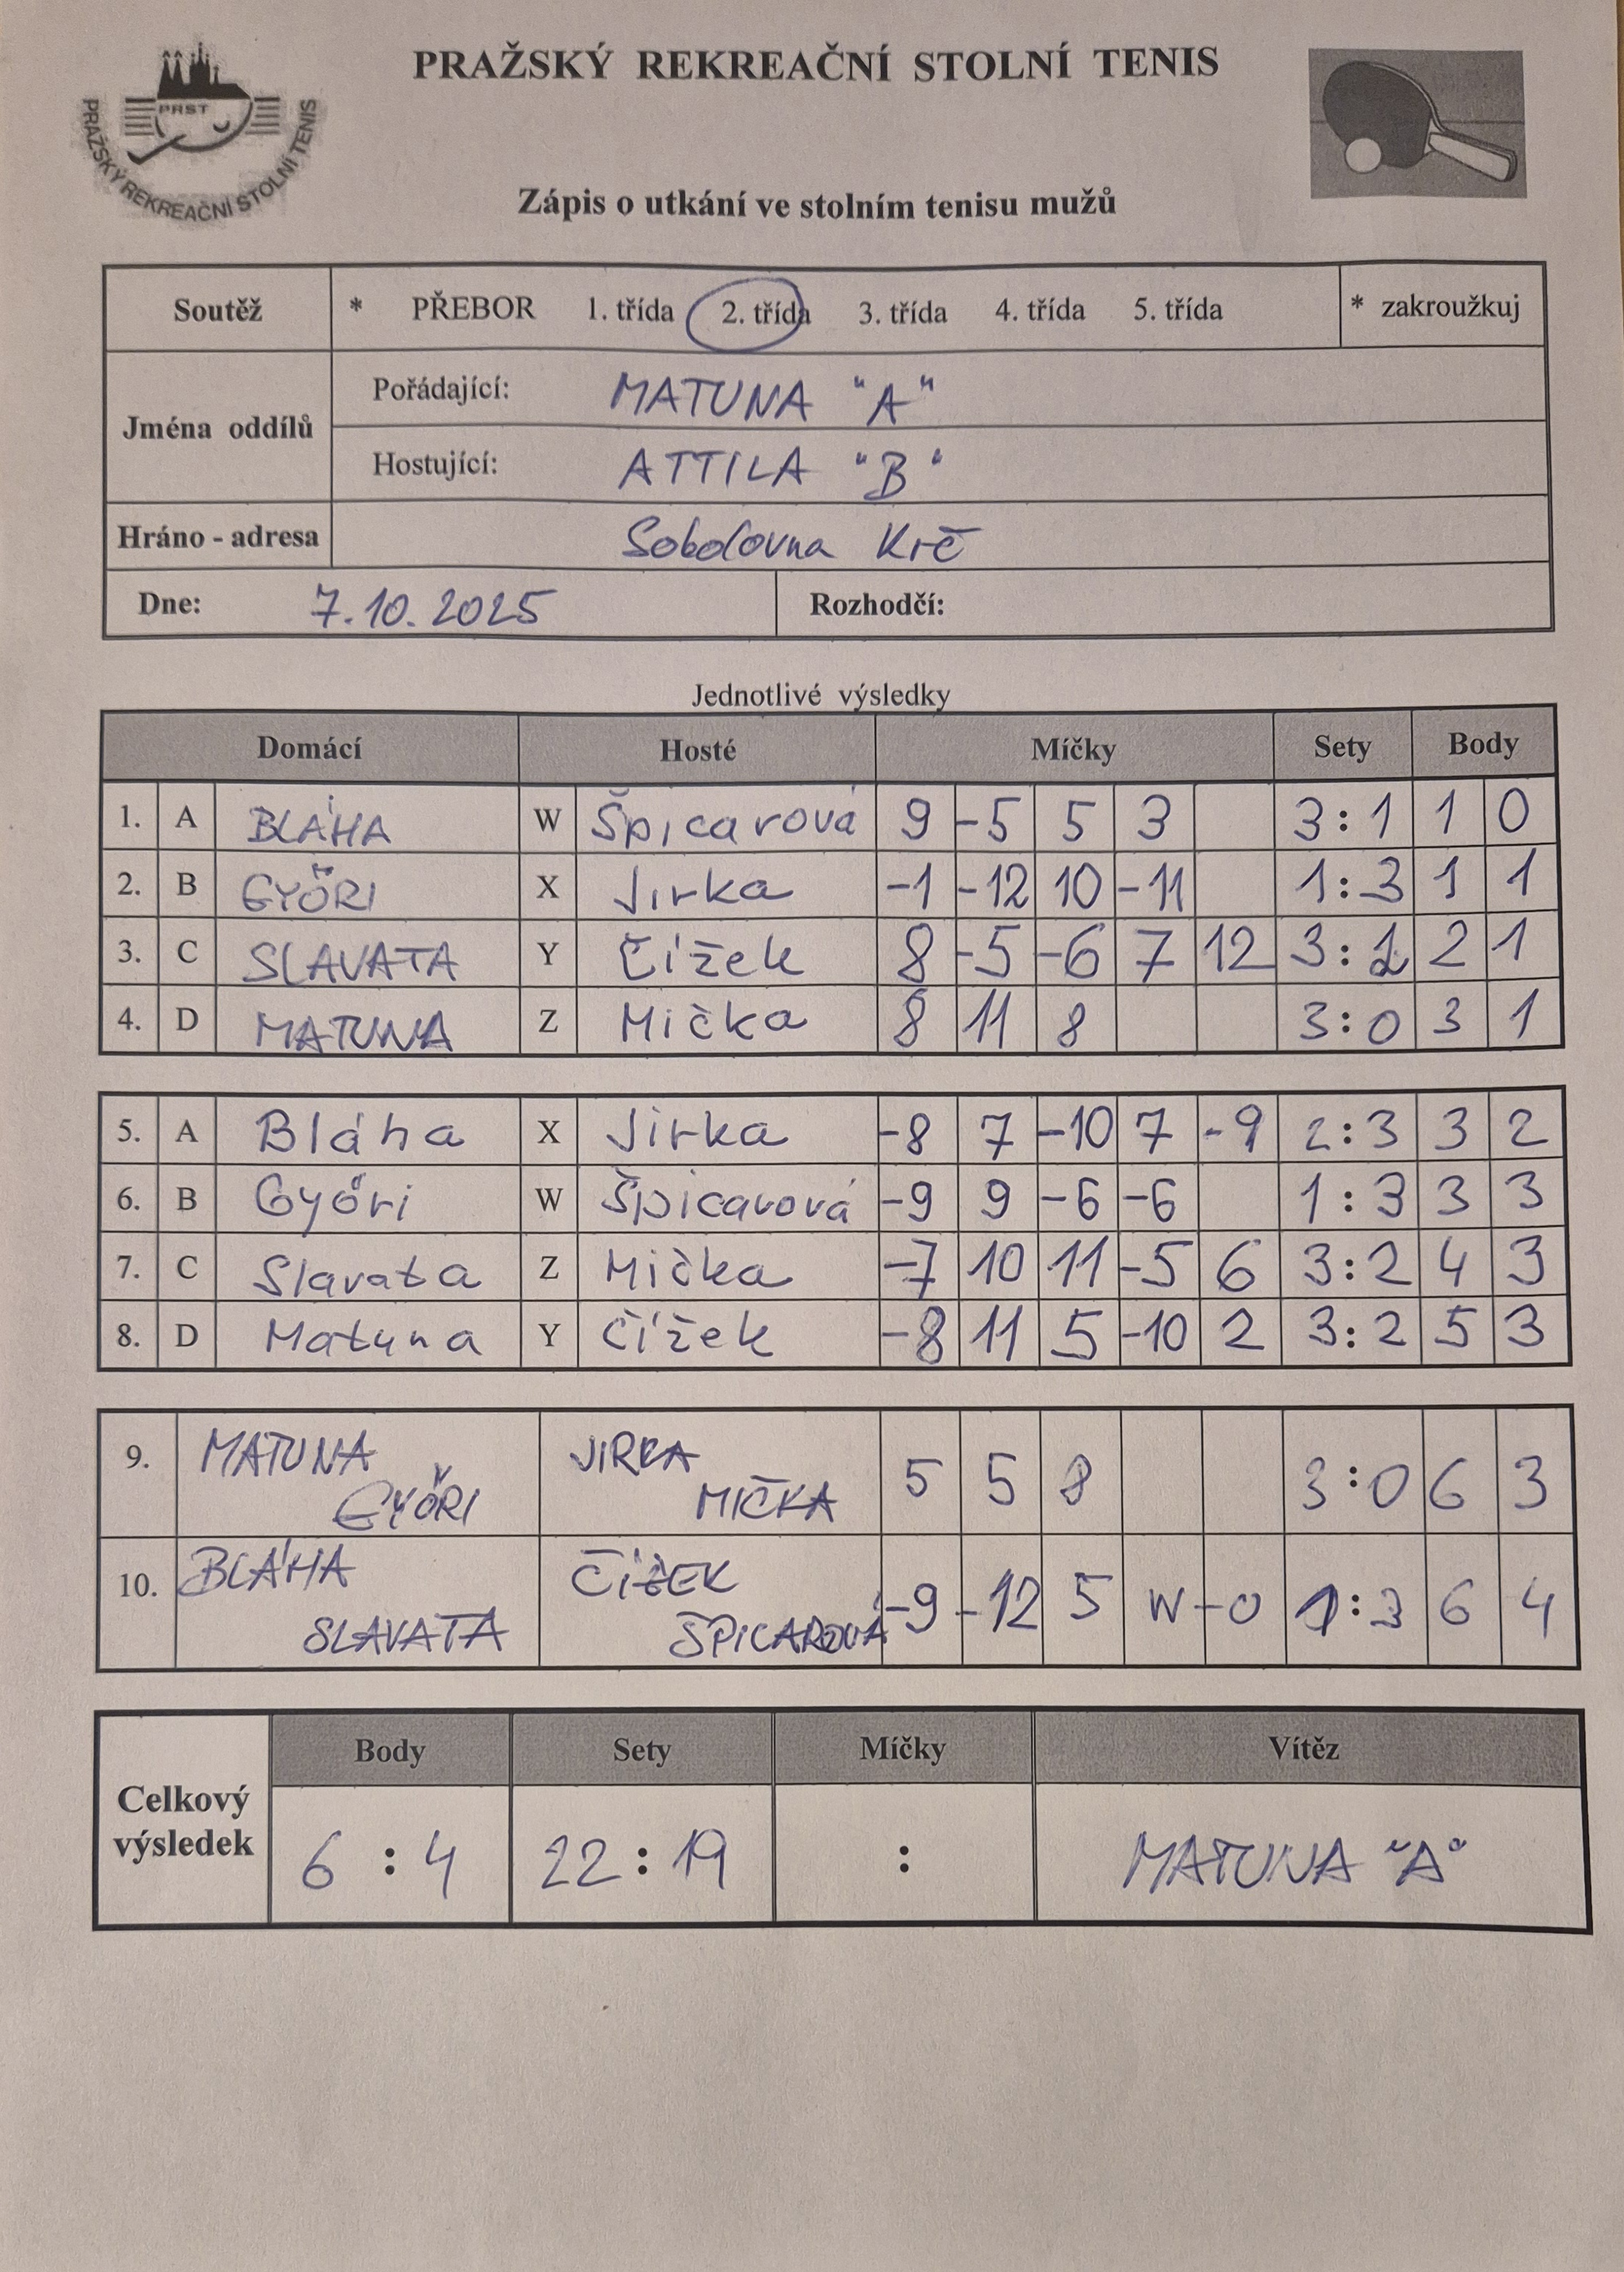 PRAŽSKÝ REKREAČNÍ STOLNÍ TENIS
PRST
PRAŽSKÝ REKREAČNÍ STOLNÍ TENIS
Zápis o utkání ve stolním tenisu mužů
Soutěž * PŘEBOR 1. třída 2. třída 3. třída 4. třída 5. třída * zakroužkuj
Jména oddílů
Pořádající: MATUNA "A"
Hostující: ATTILA "B"
Hráno - adresa Sokolovna Krč
Dne: 7.10.2025 Rozhodčí:
Jednotlivé výsledky
Domácí Hosté Míčky Sety Body
1. A BLÁHA W Špicarová 9 -5 5 3 3:1 1 0
2. B GYŐRI X Jirka -1 -12 10 -11 1:3 1 1
3. C SLAVATA Y Čížek 8 -5 -6 7 12 3:2 2 1
4. D MATUNA Z Mička 8 11 8 3:0 3 1
5. A Bláha X Jirka -8 7 -10 7 -9 2:3 3 2
6. B Győri W Špicarová -9 9 -6 -6 1:3 3 3
7. C Slavata Z Mička -7 10 11 -5 6 3:2 4 3
8. D Matuna Y Čížek -8 11 5 -10 2 3:2 5 3
9. MATUNA GYŐRI JIRKA MIČKA 5 5 8 3:0 6 3
10. BLÁHA SLAVATA ČÍŽEK ŠPICAROVÁ -9 -12 5 W-0 1:3 6 4
Celkový výsledek
Body Sety Míčky Vítěz
6:4 22:19 : MATUNA "A"